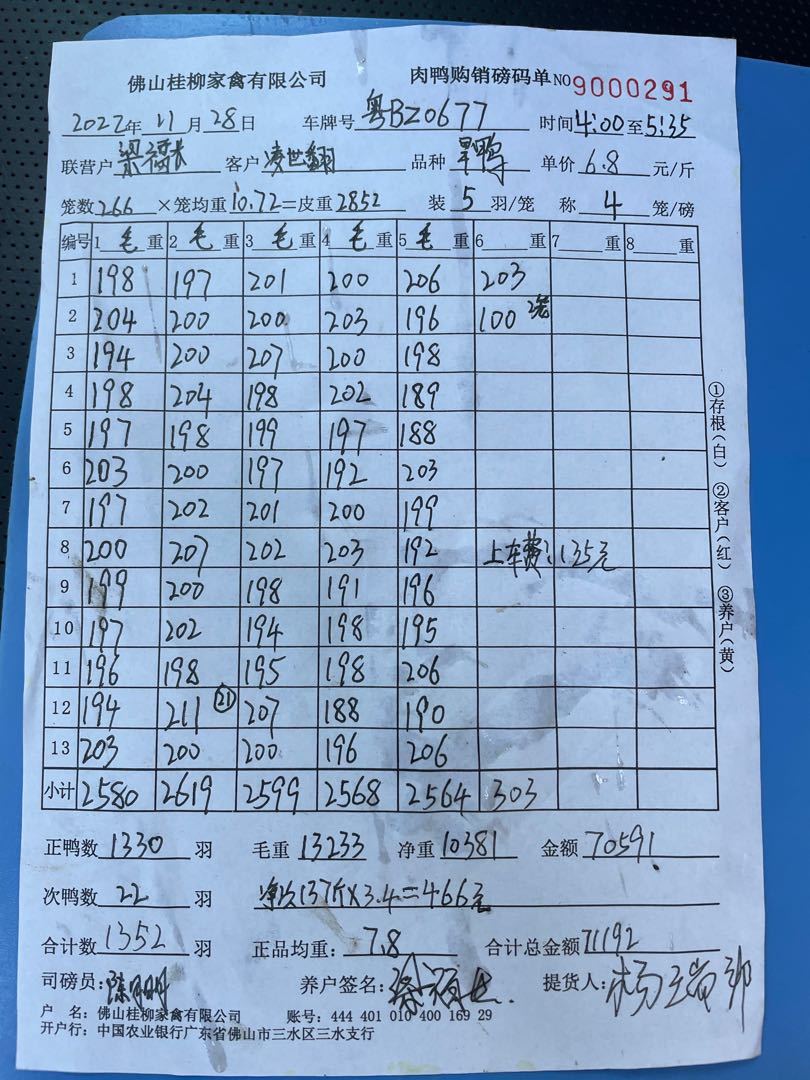 佛山桂柳家禽有限公司 肉鸭购销磅码单 NO 9000291
2022年11月28日 车牌号 粤BZ0677 时间 4:00至5:35
联营户 梁福长 客户 凌世翻 品种 旱鸭 单价 6.8 元/斤
笼数 266 ×笼均重 10.72 =皮重 2852 装 5 羽/笼 称 4 笼/磅
编号 1 毛 重 2 毛 重 3 毛 重 4 毛 重 5 毛 重 6 重 7 重 8 重
1 198 197 201 200 206 203
2 204 200 200 203 196 100 2笼
3 194 200 207 200 198
4 198 204 198 202 189
5 197 198 199 197 188
6 203 200 197 192 203
7 197 202 201 200 199
8 200 207 202 203 192 上车费:135元
9 199 200 198 191 196
10 197 202 194 198 195
11 196 198 195 198 206
12 194 211 21 207 188 190
13 203 200 200 196 206
小计 2580 2619 2599 2568 2564 303
①存根(白) ②客户(红) ③养户(黄)
正鸭数 1330 羽 毛重 13233 净重 10381 金额 70591
次鸭数 22 羽 净次137斤×3.4=466元
合计数 1352 羽 正品均重: 7.8 合计总金额 71192
司磅员: 养户签名: 提货人:
户 名: 佛山桂柳家禽有限公司 账号: 444 401 010 400 169 29
开户行: 中国农业银行广东省佛山市三水区三水支行